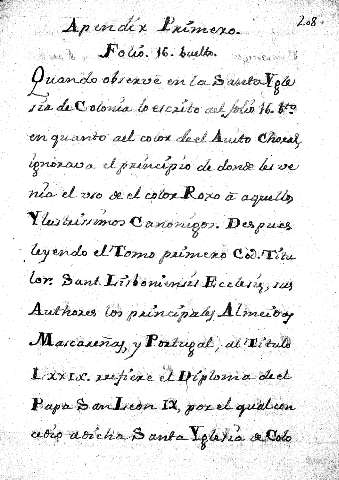 208.
Apendix Primero.
Folio. 16. buelto.
Quando observé en la Santa Ygle
sia de Colonia lo escrito del folio 16. bto
en quanto del color de el Avito Choral,
ignorava el principio de donde les ve
nia el uso de el color Roxo à aquellos
Ylustrissimos Canonigos. Despues
leyendo el Tomo primero Cod. Titu
lor. Sant. Lisboniensis Ecclesię, sus
Authores los principales Almeidas
Mascareñas, y Portugal, al Titulo
LXXIX. refiere el Diploma de el
Papa San Leon IX, por el qual con
cedio a dicha Santa Yglesia de Colo